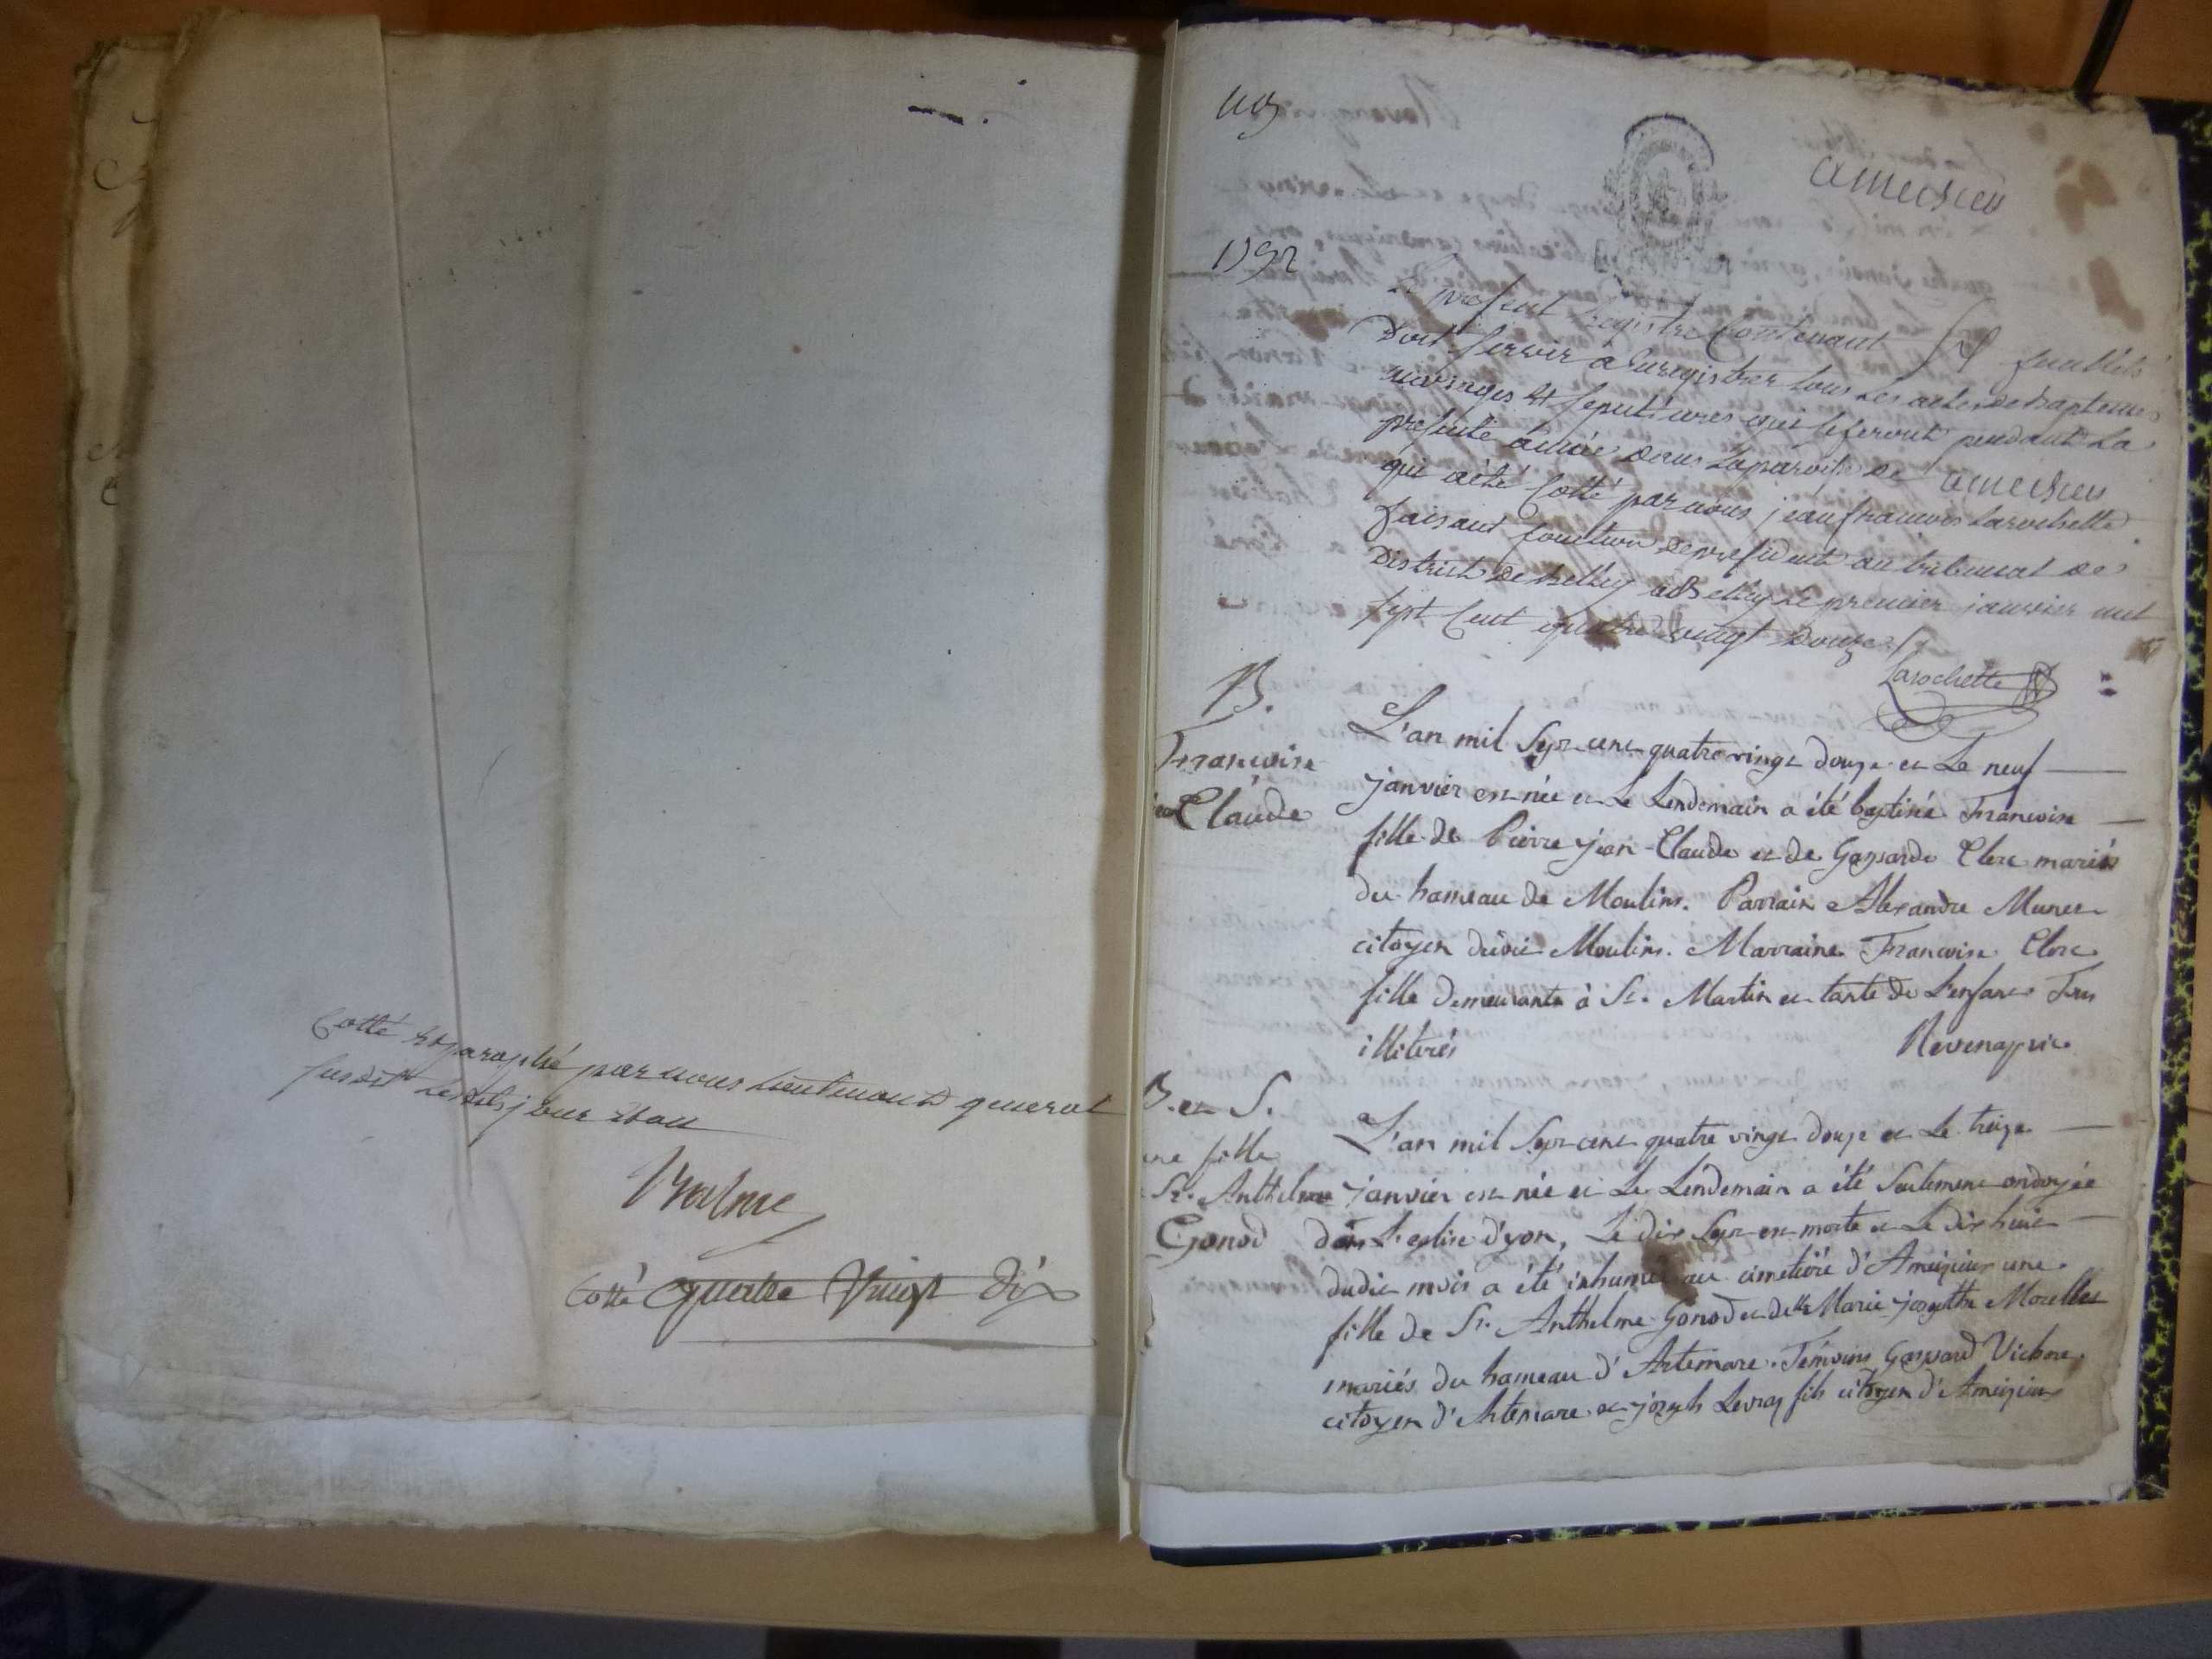 Cotté et paraphé par nous Lieutenant general
susdit les dits jour et an
Balme
Cotté quatre vingt dix
ameisieu
1792
Le present registre contenant feuillets
Doit servir à Enregistrer tous les actes de baptemes
mariages et sepultures qui se feront pendant la
presente année dans la paroisse de ameisieu
qui a été Cotté par nous jean francois Larochette
faisant fonction de president au tribunal de
District de belley a Belley le premier janvier mil
sept Cent quatre vingt Douze
Larochette
B.
Francoise
Claude
L'an mil Sept cent quatre vingt douze et Le neuf
janvier est née et Le Lendemain a été baptisée Francoise
fille de Pierre jean-Claude et de Gasparde Clerc mariés
du hameau de Moulins. Parrain Alexandre Munet
citoyen dudit Moulins. Marraine Francoise Clerc
fille demeurante à St. Martin et tante de L'enfant Tous
illiterés
B. et S.
une fille
Sr. Anthelme
Gonod
L'an mil Sept cent quatre vingt douze et Le treize
janvier est née et Le Lendemain a été Seulement ondoyée
dans L'eglise d'yon, Le dix Sept est morte et Le dix huit
dudit mois a été inhumée au cimetiére d'Ameizieu une
fille de Sr. Anthelme Gonod et dlle Marie josephte Morellet
mariés du hameau d'Artemare. Témoins Gaspard
citoyen d'Artemare et joseph Levray fils citoyen d'Ameizieu